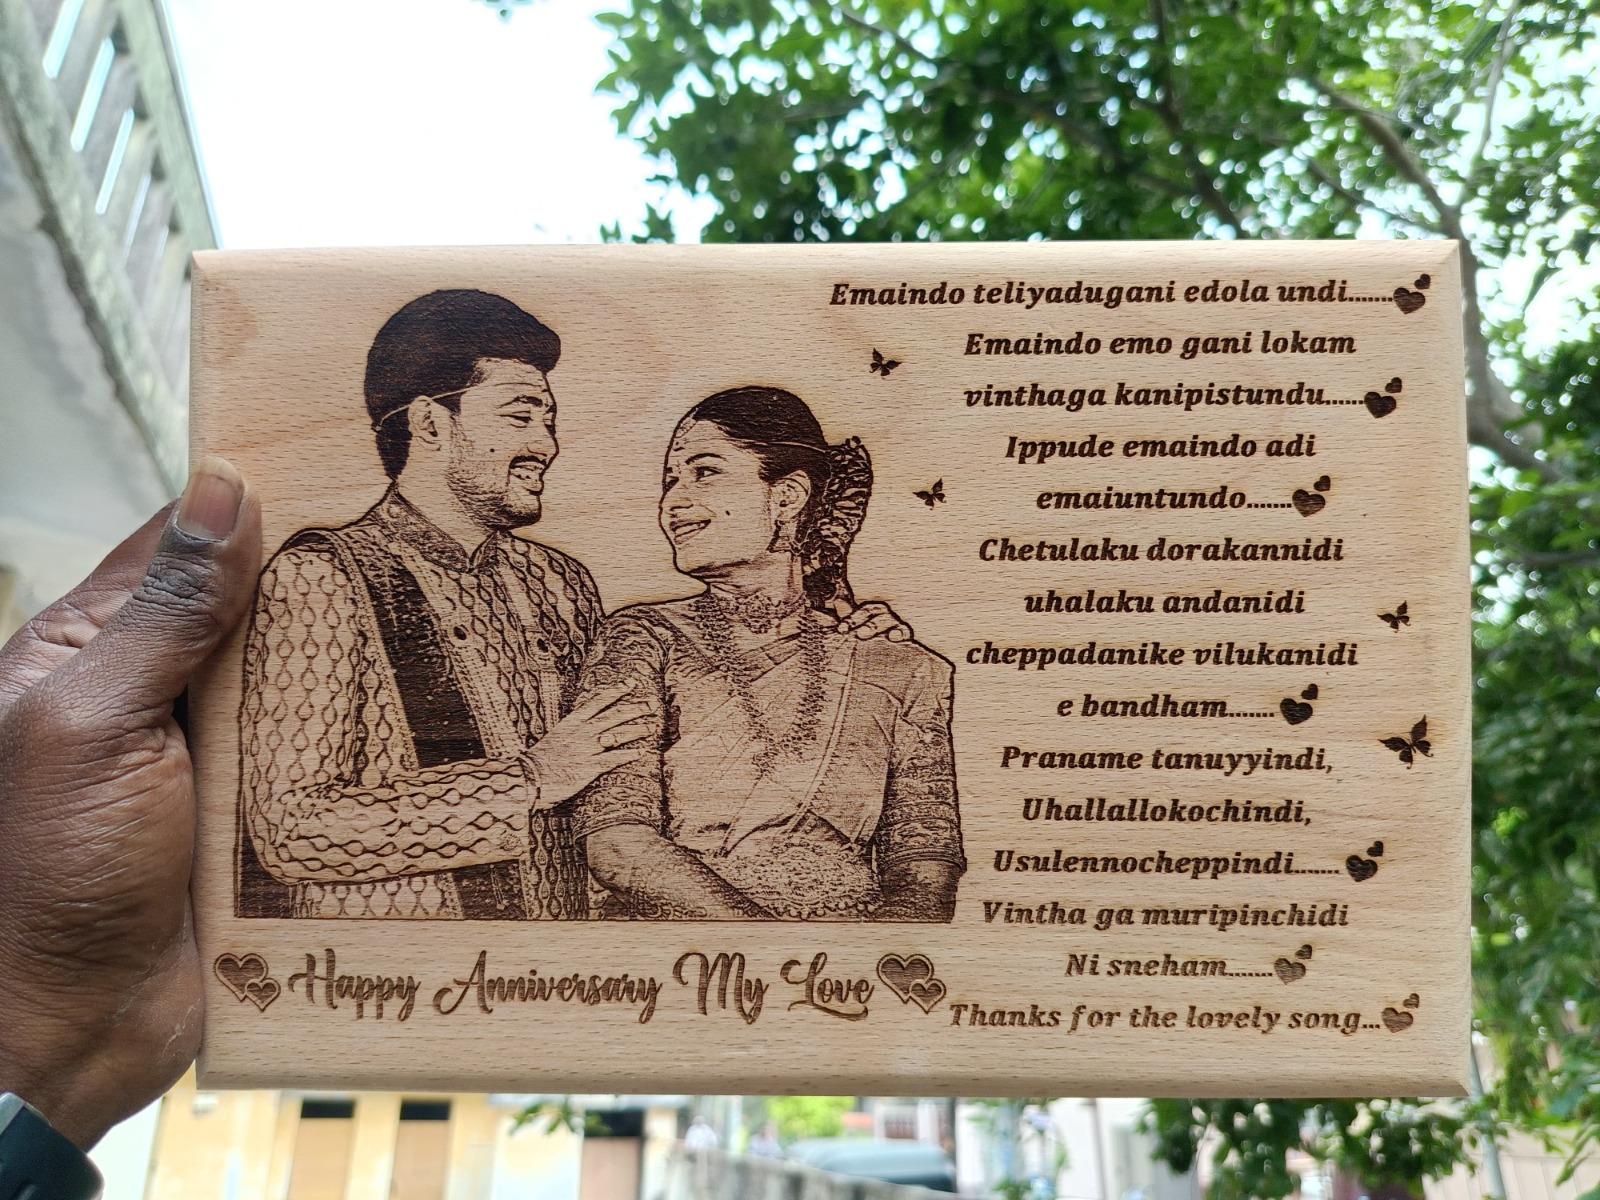 Emaindo teliyadugani edola undi.......
Emaindo emo gani lokam
vinthaga kanipistundu......
Ippude emaindo adi
emaiuntundo.......
Chetulaku dorakannidi
uhalaku andanidi
cheppadanike vilukanidi
e bandham.......
Praname tanuyyindi,
Uhallallokochindi,
Usulennocheppindi.......
Vintha ga muripinchidi
Ni sneham.......
Thanks for the lovely song...
Happy Anniversary My Love